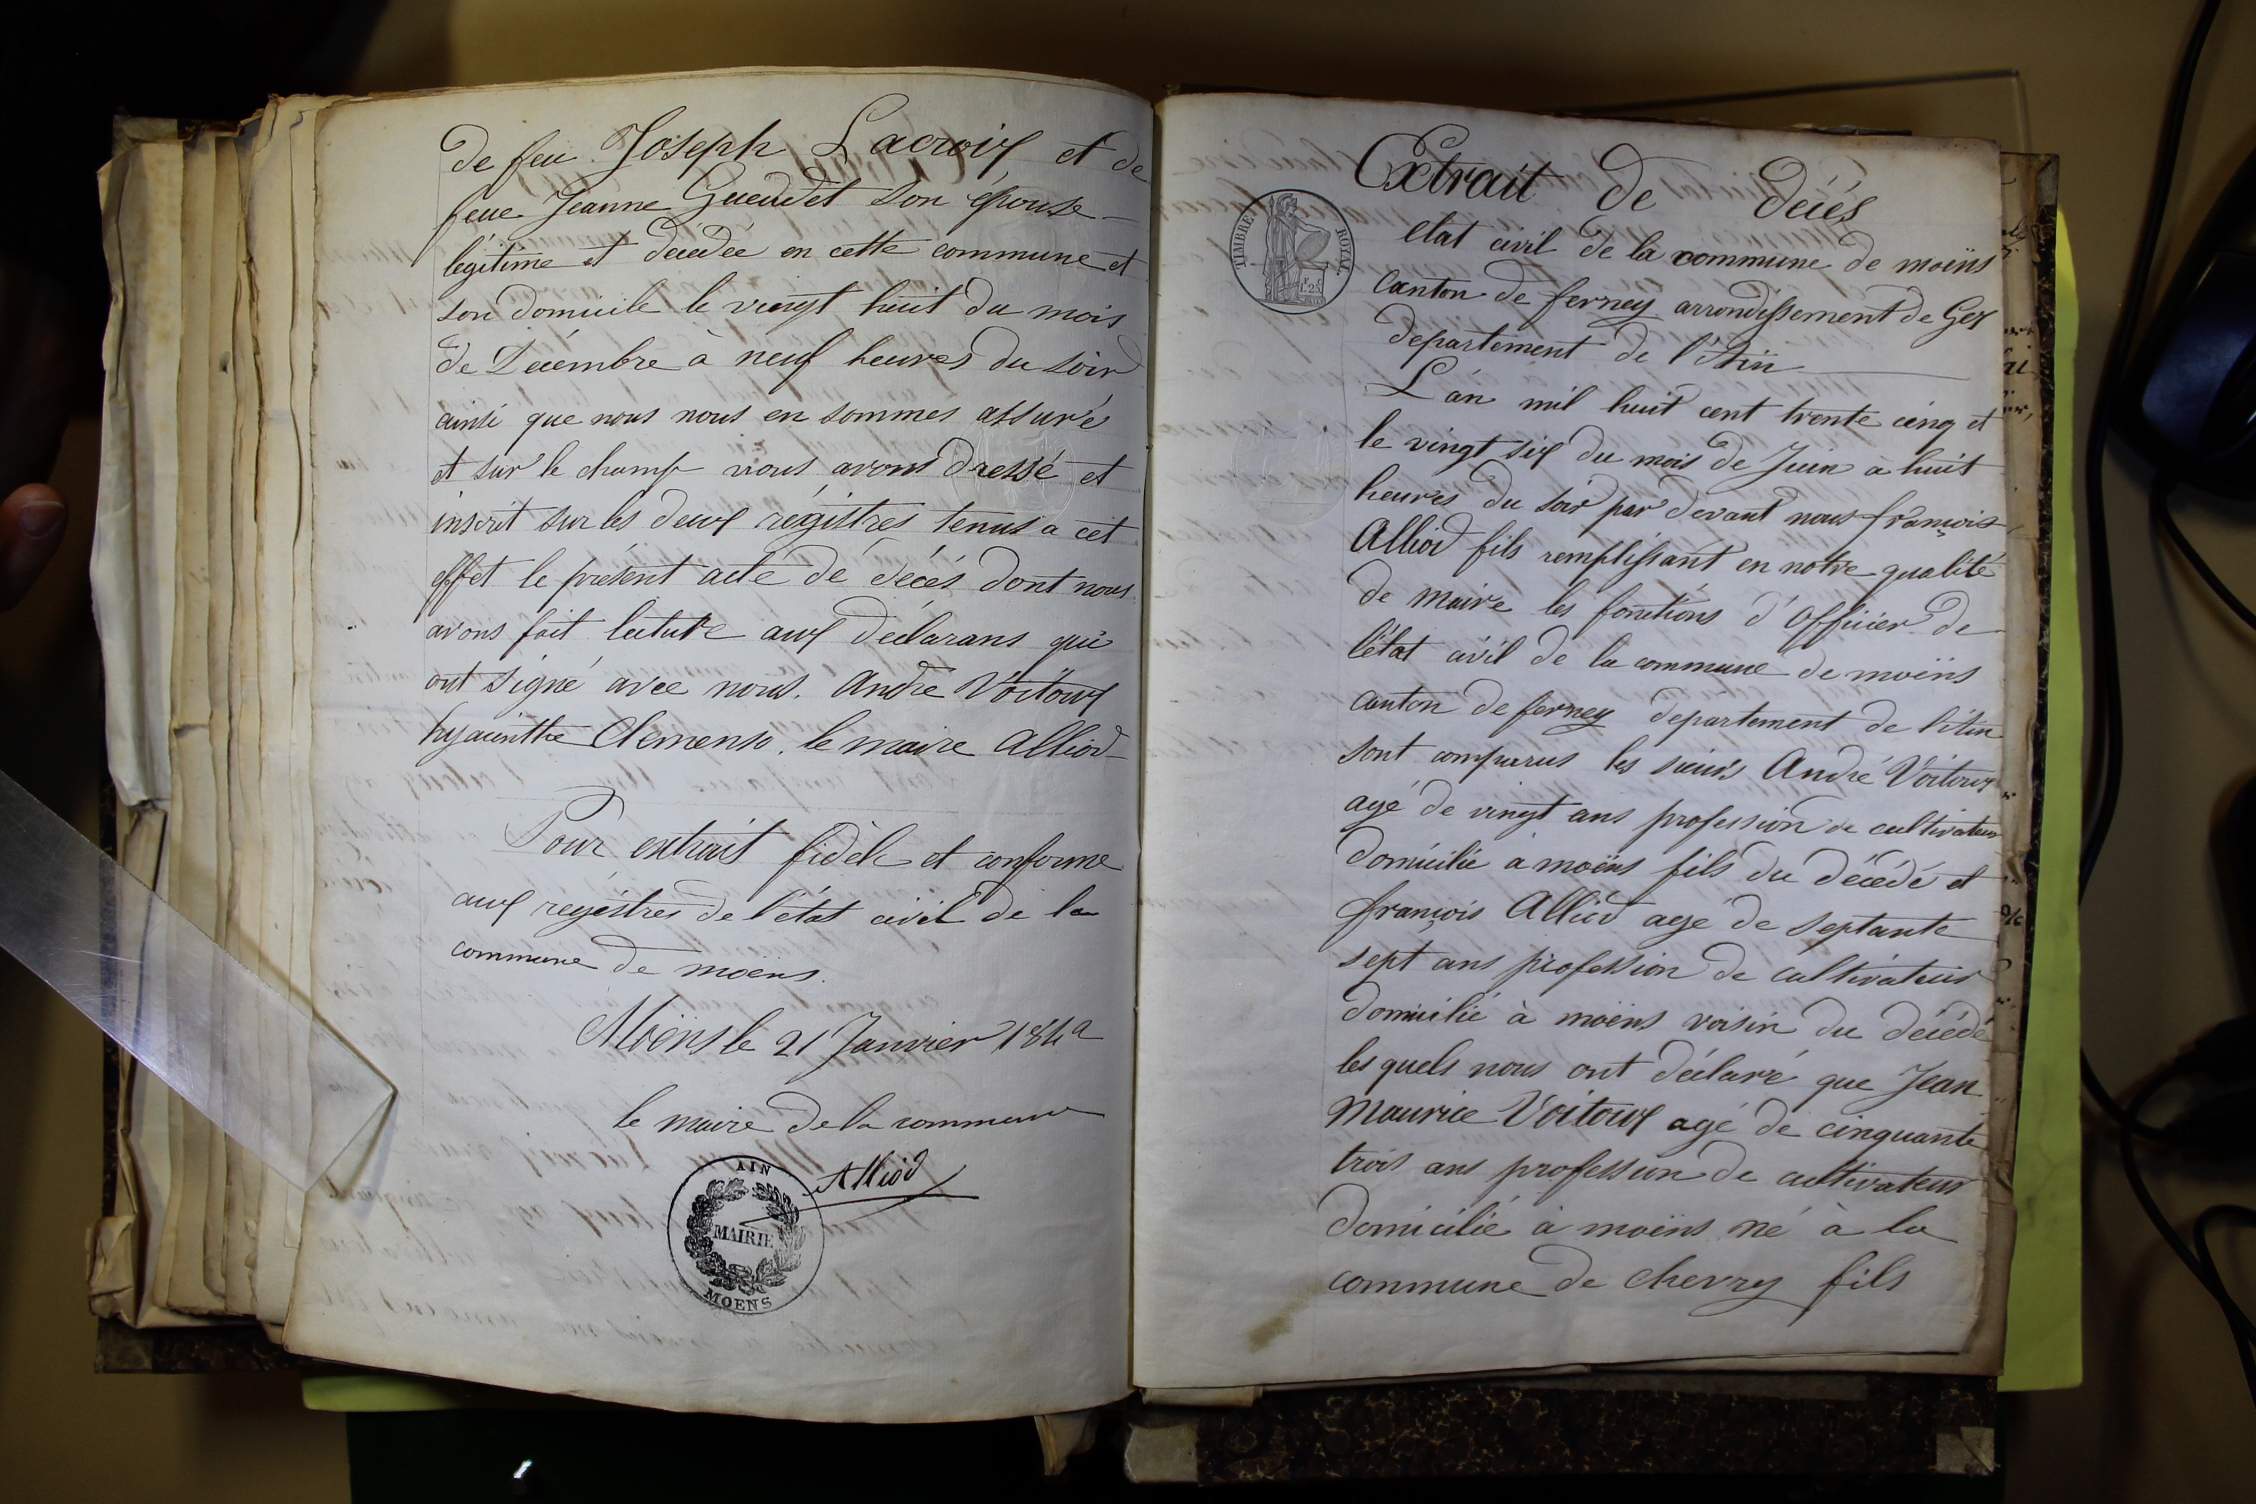 de feu Joseph Lacroix et de
feue Jeanne Gueudet son épouse
légitime et décédée en cette commune et
son domicile le vingt huit du mois
de Décembre à neuf heures du soir
ainsi que nous nous en sommes assuré
et sur le champ nous avons dressé et
inscrit sur les deux régistres tenus a cet
effet le présent acte de décés dont nous
avons fait lecture aux déclarans qui
ont signé avec nous. André Voitoux
hyacinthe Clemenso. le maire Alliod
Pour extrait fidèle et conforme
aux régistres de l'état civil de la
commune de moëns.
Moëns le 21 Janvier 1842
le maire de la commune
Alliod
AIN
MAIRIE
MOENS
Extrait de décés
TIMBRE ROYAL
1.25
etat civil de la commune de moëns
Canton de ferney arrondissement de Gex
departement de l'Ain
L'an mil huit cent trente cinq et
le vingt six du mois de Juin a huit
heures du soir par devant nous françois
Alliod fils remplissant en notre qualité
de Maire les fonctions d'officier de
l'état civil de la commune de moëns
canton de ferney departement de l'Ain
sont comparus les sieurs André Voitoux
agé de vingt ans profession de cultivateur
domicilié a moëns fils du décédé et
françois Alliod agé de septante
sept ans profession de cultivateur
domicilié à moëns voisin du décédé
les quels nous ont déclaré que Jean
Maurice Voitoux agé de cinquante
trois ans profession de cultivateur
domicilié à moëns né à la
commune de chevry fils